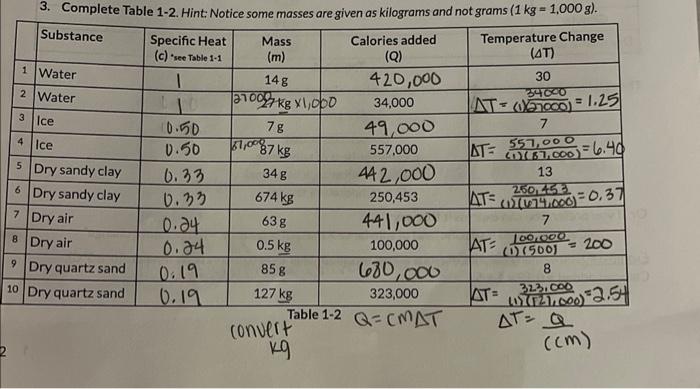 3. Complete Table 1-2. Hint: Notice some masses are given as kilograms and not grams (1 kg = 1,000 g).
Substance Specific Heat (c) *see Table 1-1 Mass (m) Calories added (Q) Temperature Change (ΔT)
1 Water 1 14 g 420,000 30
2 Water 1 27 kg x1,000 34,000 ΔT= 34000 / (1)(27000) = 1.25
3 Ice 0.50 7 g 49,000 7
4 Ice 0.50 87,000 87 kg 557,000 ΔT= 557,000 / (1)(87,000) = 6.40
5 Dry sandy clay 0.33 34 g 442,000 13
6 Dry sandy clay 0.33 674 kg 250,453 ΔT= 250,453 / (1)(674,000) = 0.37
7 Dry air 0.24 63 g 441,000 7
8 Dry air 0.24 0.5 kg 100,000 ΔT= 100,000 / (1)(500) = 200
9 Dry quartz sand 0.19 85 g 680,000 8
10 Dry quartz sand 0.19 127 kg 323,000 ΔT= 323,000 / (1)(127,000) = 2.54
Table 1-2 Q=CMΔT ΔT= Q / (cm)
convert kg
2